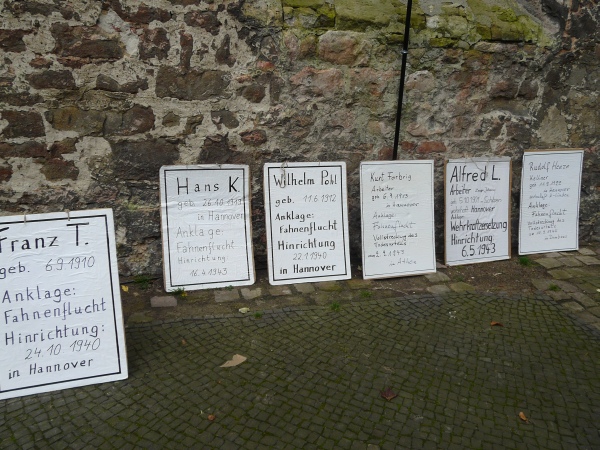 Franz T.
geb. 6.9.1910
Anklage:
Fahnenflucht
Hinrichtung:
24.10 1940
in Hannover
Hans K.
geb. 26.10.1913
in Hannover
Anklage:
Fahnenflucht
Hinrichtung:
16.4 1943
Wilhelm Pohl
geb. 11.6.1912
Anklage:
Fahnenflucht
Hinrichtung
22.1 1940
in Hannover
Kurt
Arbeiter
geb.
in Hannover
Anklage
Fahnenflucht
Vollstreckung
des
Todesurteils
Alfred L.
Arbeiter
Hannover
Wehrkraftzersetzung
Hinrichtung
6.5 1943
Rudolf
in Hannover
Anklage
Fahnenflucht
Vollstreckung des
Todesurteils